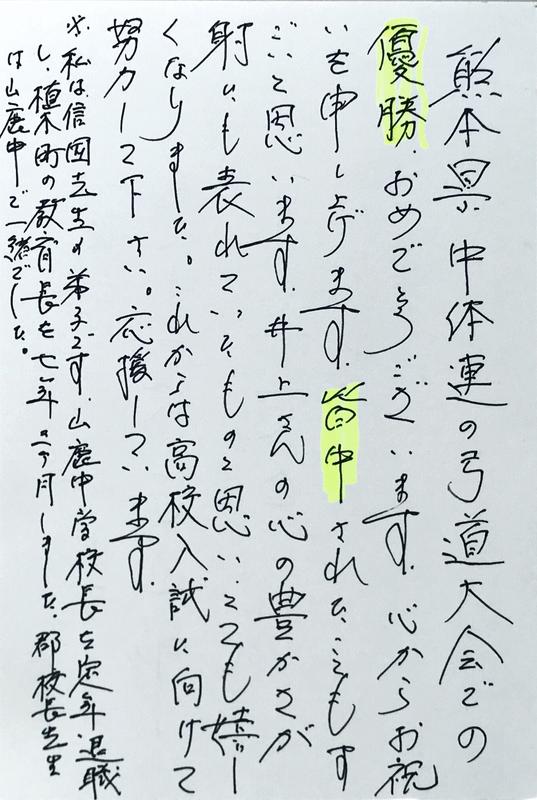 熊本県中体連の弓道大会での
優勝、おめでとうございます。心からお祝
いを申し上げます。皆中されたこともす
ごいと思います。井上さんの心の豊かさが
射にも表れていたものと思い、とても嬉し
くなりました。これからは高校入試に向けて
努力して下さい。応援しています。
※私は信国先生の弟子です。山鹿中学校長を定年退職
し、植木町の教育長を七年二ヶ月しました。郡校長先生
は山鹿中で一緒でした。